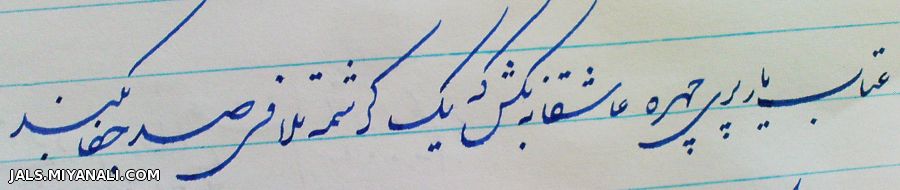 عتاب یار پری چهره عاشقانه بکش که یک کرشمه تلافی صد جفا بکند
JALS.MIYANALI.COM